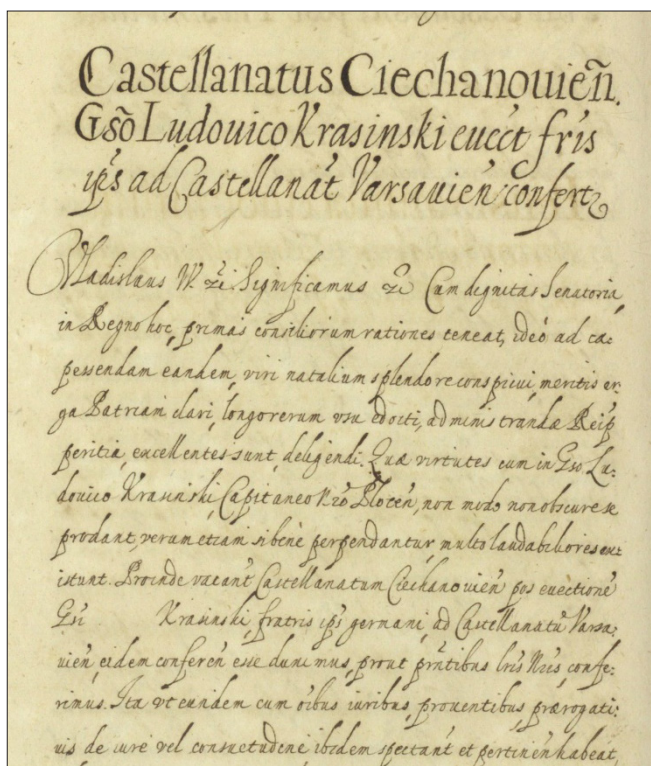 Castellanatus Ciechanouieñ.
Gsõ Ludouico Krasinski euect fris
ips ad Castellanat Varsauień confert
Vladislaus IV. etc. Significamus etc. Cum dignitas Senatoria,
in Regno hoc, primas consiliorum rationes teneat, ideò ad ca:
pessendam eandem, viri natalium splendore conspicui, meritis er:
ga Patriam clari, longo rerum vsu edocti, administrandæ Reip
peritiâ, excellentes sunt, deligendi. Quæ virtutes cum in Gso Lu:
douico Krasinski, Capitaneo Nro Plocen, non modo non obscure se
prodant, verum etiam si bene perpendantur, multo laudabiliores ext
istunt. Proinde vacant Castellanatum Ciechanouień pos euectione
Gsi Krasinski, fratris ips germani, ad Castellanatu Varsa,
uień, eidem conferen esse duximus, prout pntibus lris Nris, confe:
rimus. Ita vt eundem cum oibus iuribus, prouentibus prærogati:
uis de iure vel consuetudine ibidem spectant et pertinen habeat,